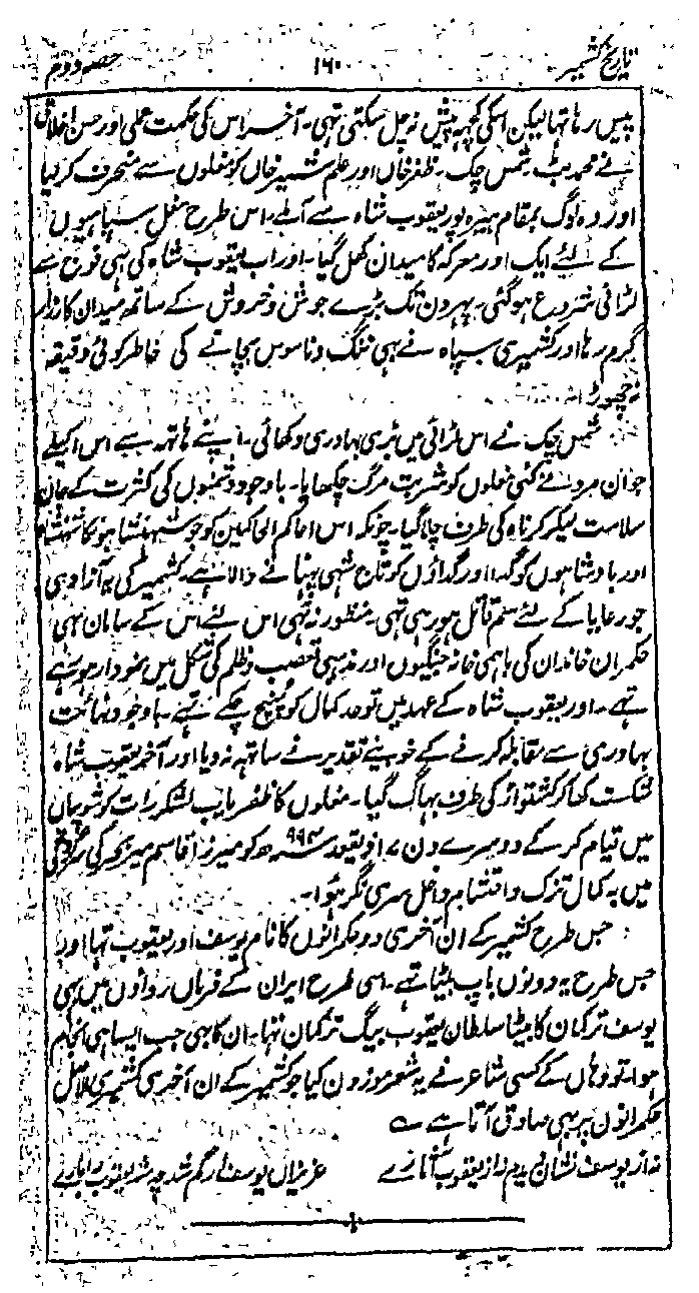 تاریخ کشمیر ۱۶۰ حصہ دوم
پیس رہا تھا لیکن اسکی کچھ پیش نہ چل سکتی تھی۔ آخر اس کی حکمت عملی اور حسن اخلاق
نے محمد بٹ شمس چک۔ ظفر خاں اور علم شیر خاں کو مغلوں سے منحرف کر دیا
اور وہ لوگ بمقام ہیرہ پور یعقوب شاہ سے آملے۔ اس طرح مغل سپاہیوں
کے لئے ایک اور معرکہ کا میدان کھل گیا۔ اور اب یعقوب شاہ کی ہی فوج سے
لڑائی شروع ہوگئی۔ پہروں تک بڑے جوش و خروش کے ساتھ میدان کارزار
گرم رہا اور کشمیری سپاہ نے بھی ننگ و ناموس بچانے کی خاطر کوئی دقیقہ
نہ چھوڑا۔
شمس چک نے اس لڑائی میں بڑی بہادری دکھائی۔ اپنے ہاتھ سے اس اکیلے
جوان مرد نے کئی مغلوں کو شربت مرگ چکھایا۔ باوجود دشمنوں کی کثرت کے جان
سلامت لیکر کرناہ کی طرف چلا گیا۔ چونکہ اس احاکم الحاکمین کو جو شہنشاہوں کا شہنشاہ
اور بادشاہوں کو گدا اور گداؤں کو تاج شہی پہنانے والا ہے۔ کشمیر کی یہ آزادی
جو رعایا کے لئے سم قاتل ہو رہی تھی۔ منظور نہ تھی اس لئے اس کے سامان بھی
حکمران خاندان کی باہمی خانہ جنگیوں اور مذہبی تعصب و ظلم کی شکل میں نمودار ہو رہے
تھے۔ اور یعقوب شاہ کے عہد میں تو حد کمال کو پہنچ چکے تھے۔ باوجود نہائت
بہادری سے مقابلہ کرنے کے خوبیے تقدیر نے ساتھ نہ دیا اور آخر یعقوب شاہ
شکست کھا کر کشتواڑ کی طرف بھاگ گیا۔ مغلوں کا ظفریاب لشکر رات کو شوپیاں
میں قیام کر کے دوسرے دن ۷ ذیقعد ۹۹۴ھ کو میرزا قاسم میر بحر کی سرکردگی
میں بہ کمال تزک و احتشام داخل سری نگر ہوا۔
جس طرح کشمیر کے ان آخری دو حکمرانوں کا نام یوسف اور یعقوب تھا اور
جس طرح یہ دونوں باپ بیٹا تھے۔ اسی طرح ایران کے فرماں رواؤں میں بھی
یوسف ترکمان کا بیٹا سلطان یعقوب بیگ ترکمان تھا۔ ان کا بھی جب ایسا ہی انجام
ہوا۔ تو وہاں کے کسی شاعر نے یہ شعر موزون کیا جو کشمیر کے ان آخری کشمیری الاصل
حکمرانوں پر بھی صادق آتا ہے ؎
نہ از یوسف نشاں دیدم نہ از یعقوب آثارے عزیزاں یوسف ار گم شد چہ شد یعقوب را بارے